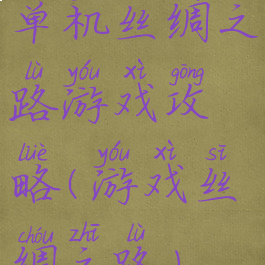 单机丝绸之
lù yóu xì gōng
路游戏攻
lüè yóu xì sī
略(游戏丝
chóu zhī lù
绸之路)